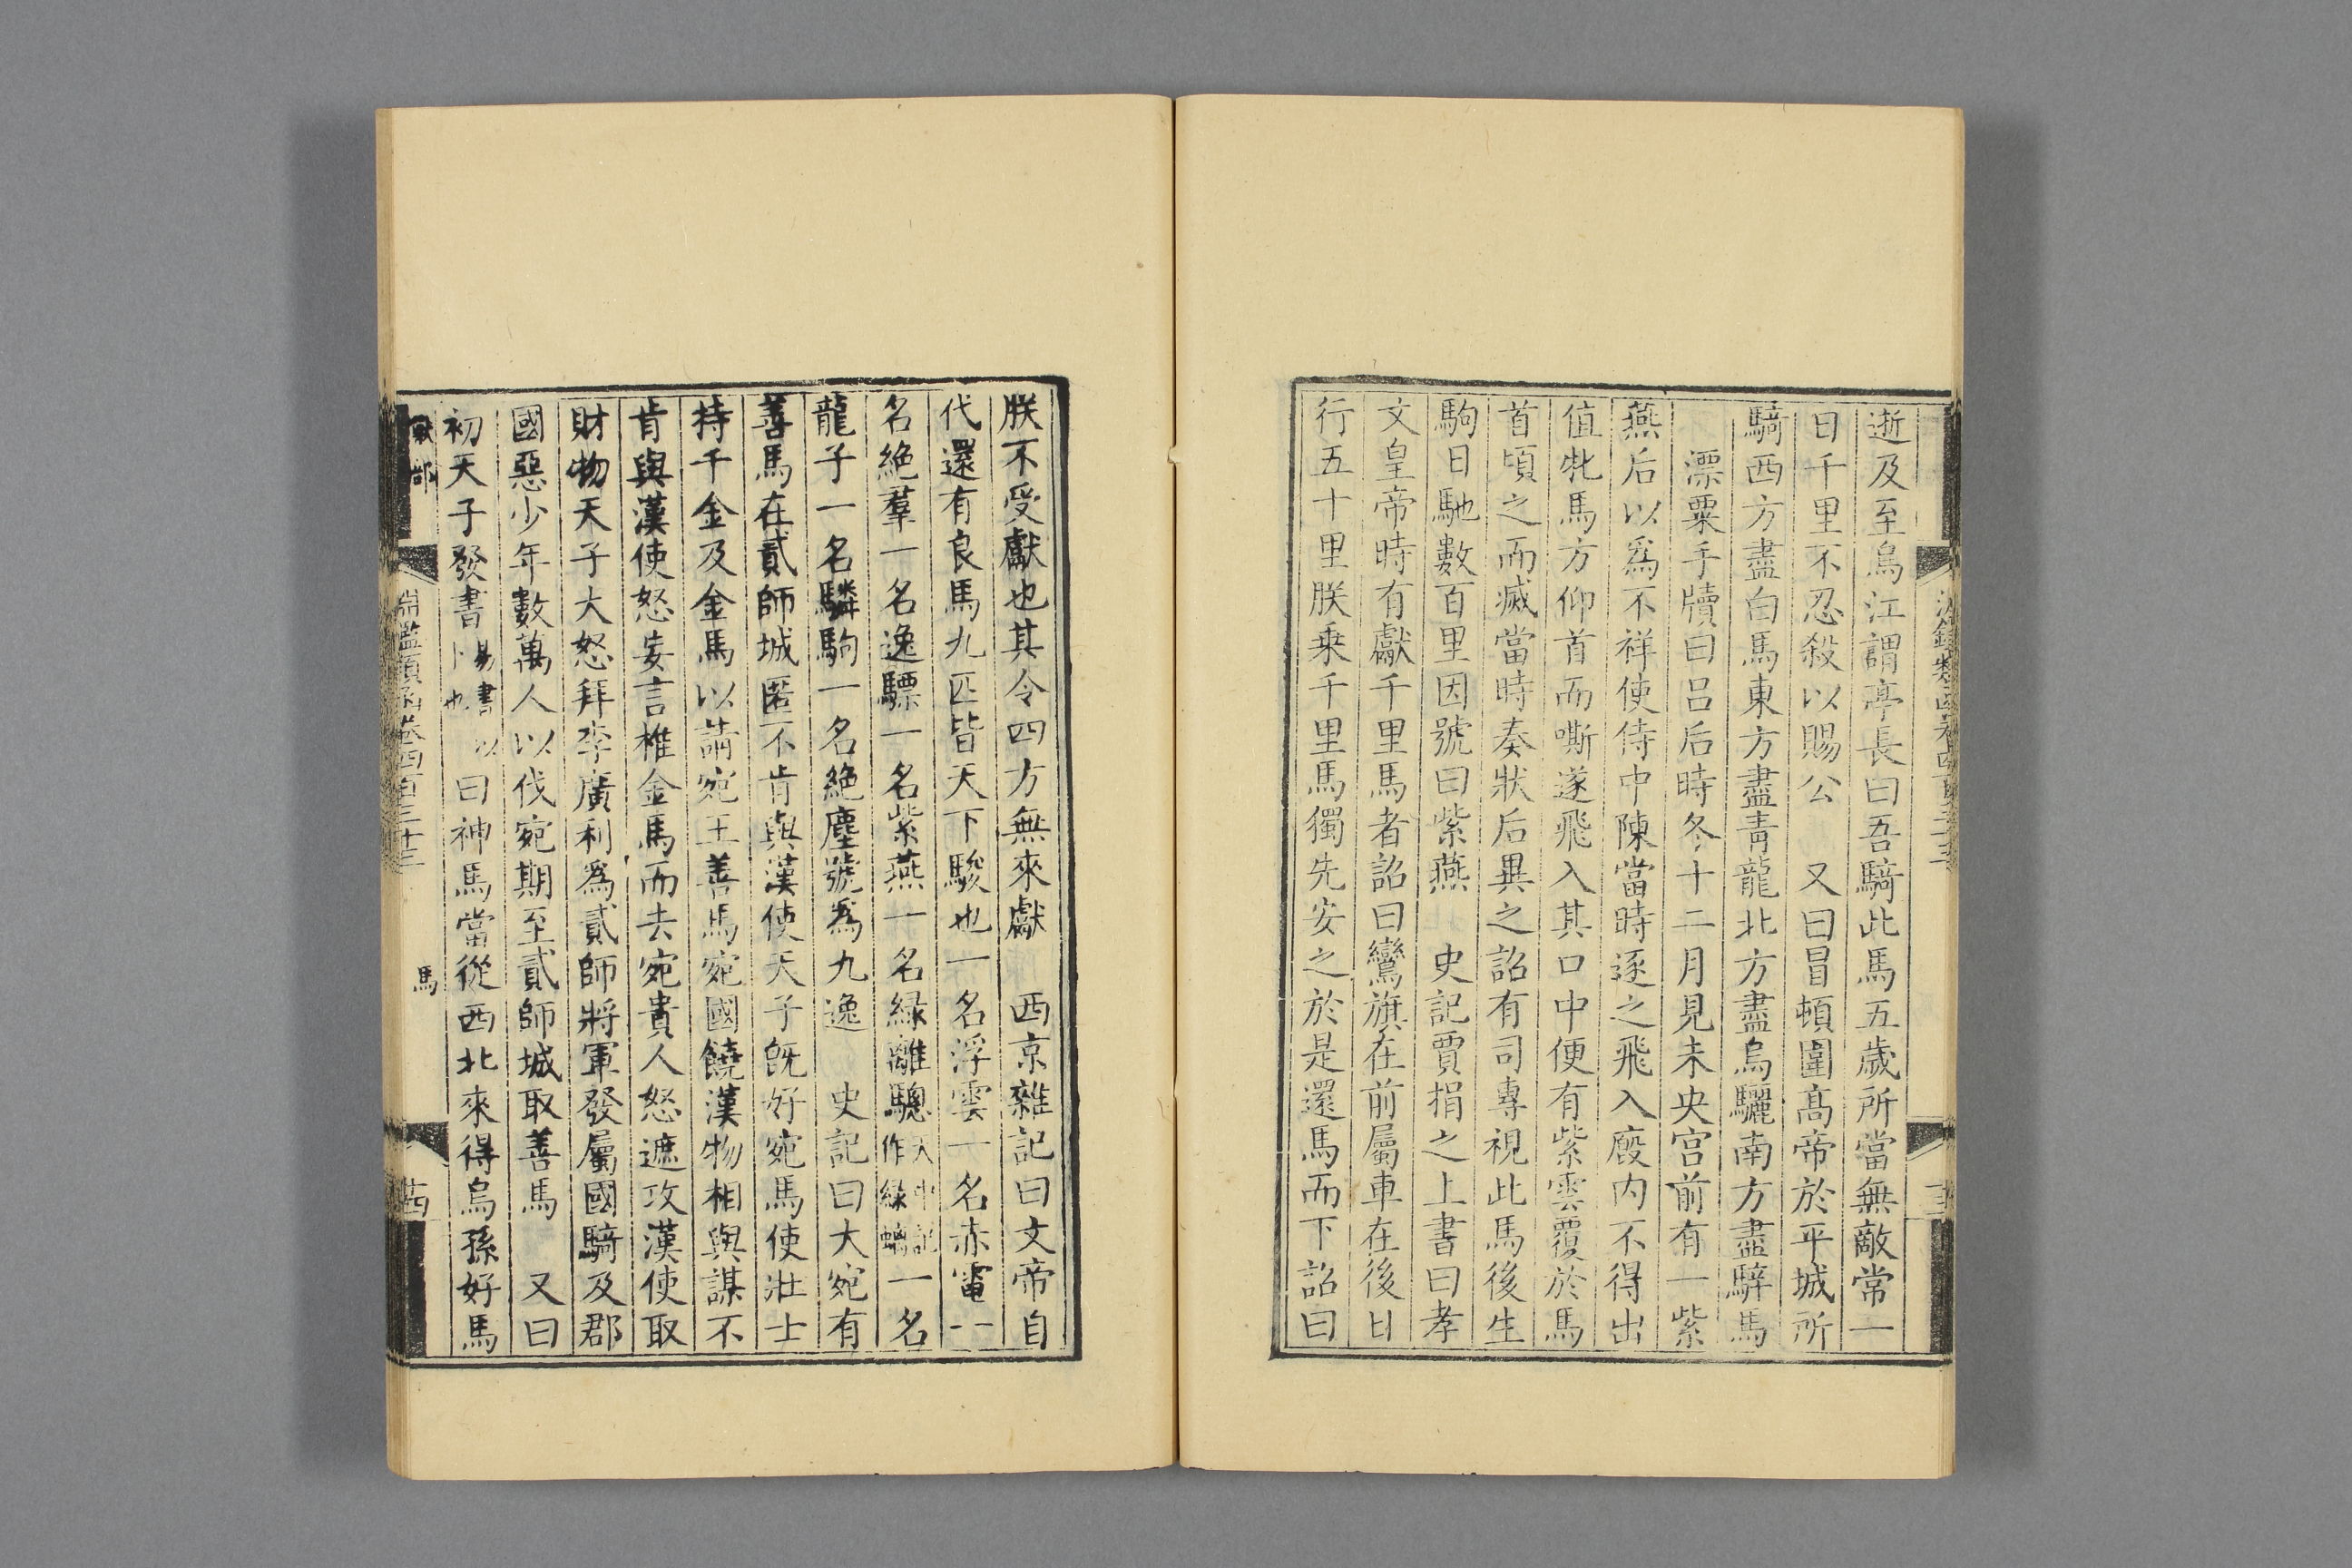 逝及至烏江謂亭長曰吾騎此馬五歲所當無敵常一
日千里不忍殺以賜公　又曰冒頓圍髙帝於平城所
騎西方盡白馬東方盡青龍北方盡烏驪南方盡騂馬
漂粟手牘曰呂后時冬十二月見未央宫前有一紫
燕后以爲不祥使侍中陳當時逐之飛入廄内不得出
值牝馬方仰首而嘶遂飛入其口中便有紫雲覆於馬
首頃之而滅當時奏狀后異之詔有司專視此馬後生
駒日馳數百里因號曰紫燕　史記賈捐之上書曰孝
文皇帝時有獻千里馬者詔曰鸞旗在前屬車在後日
行五十里朕乗千里馬獨先安之於是還馬而下詔曰
朕不受獻也其令四方無來獻　西京雜記曰文帝自
代還有良馬九匹皆天下駿也一名浮雲一名赤電一
名絶羣一名逸驃一名紫燕一名緑離驄天中記作緑螭一名
龍子一名驎駒一名絶塵號爲九逸　史記曰大宛有
善馬在貳師城匿不肯與漢使天子旣好宛馬使壯士
持千金及金馬以請宛王善馬宛國饒漢物相與謀不
肯與漢使怒妄言椎金馬而去宛貴人怒遮攻漢使取
財物天子大怒拜李廣利爲貳師將軍發屬國騎及郡
國惡少年數萬人以伐宛期至貳師城取善馬　又曰
初天子發書易書以卜也曰神馬當從西北來得烏孫好馬
獸部
淵鑑類函卷四百三十三
馬